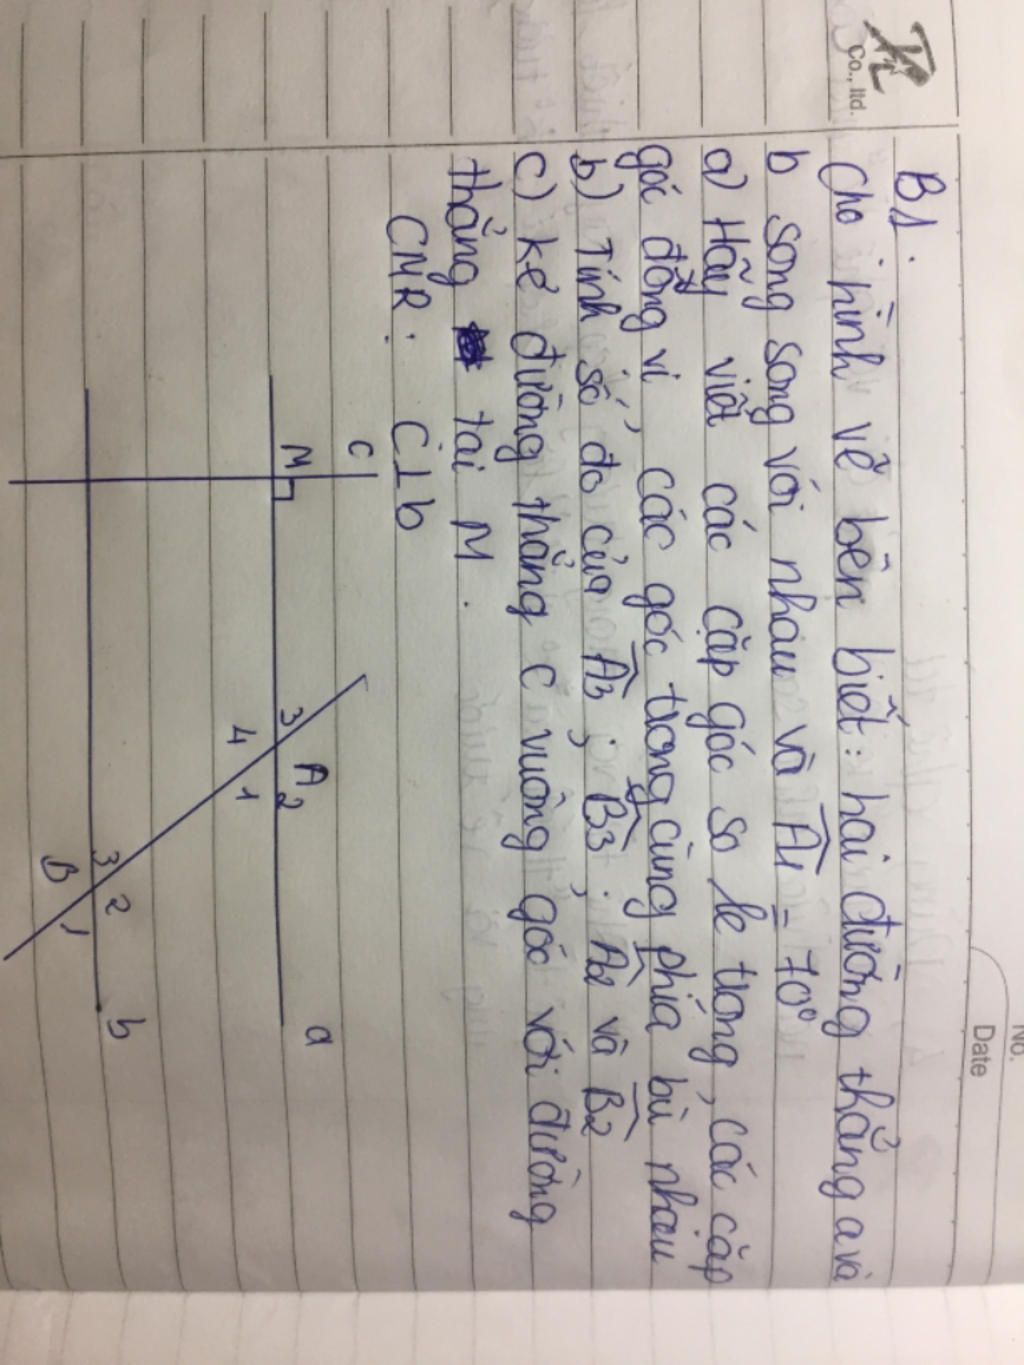 Co., ltd.
No.
Date
B1.
Cho hình vẽ bên biết: hai đường thẳng a và
b song song với nhau và A1 = 70°
a) Hãy viết các cặp góc so le trong, các cặp
góc đồng vị, các góc trong cùng phía bù nhau
b) Tính số đo của A3; B3; A2 và B2
c) kẻ đường thẳng c vuông góc với đường
thẳng tại M.
CMR: C⊥b
c
M
a
3
A
2
4
1
3
2
b
B
1